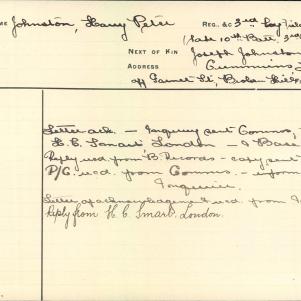 ME Johnston, Harry Peter REG. &C 3rd Coy Field
(late 10th Batt. 3rd
NEXT OF KIN Joseph Johnston
ADDRESS Cummins
off Garnet St, Broken Hill
Letter ack. — Inquiry sent Commns,
H. C. Smart London — & Base
Reply recd. from B. Records — copy sent
P/C recd. from Commns. — inform
Inquirer.
Letter of acknowledgement recd. from
Reply from H. C. Smart, London.